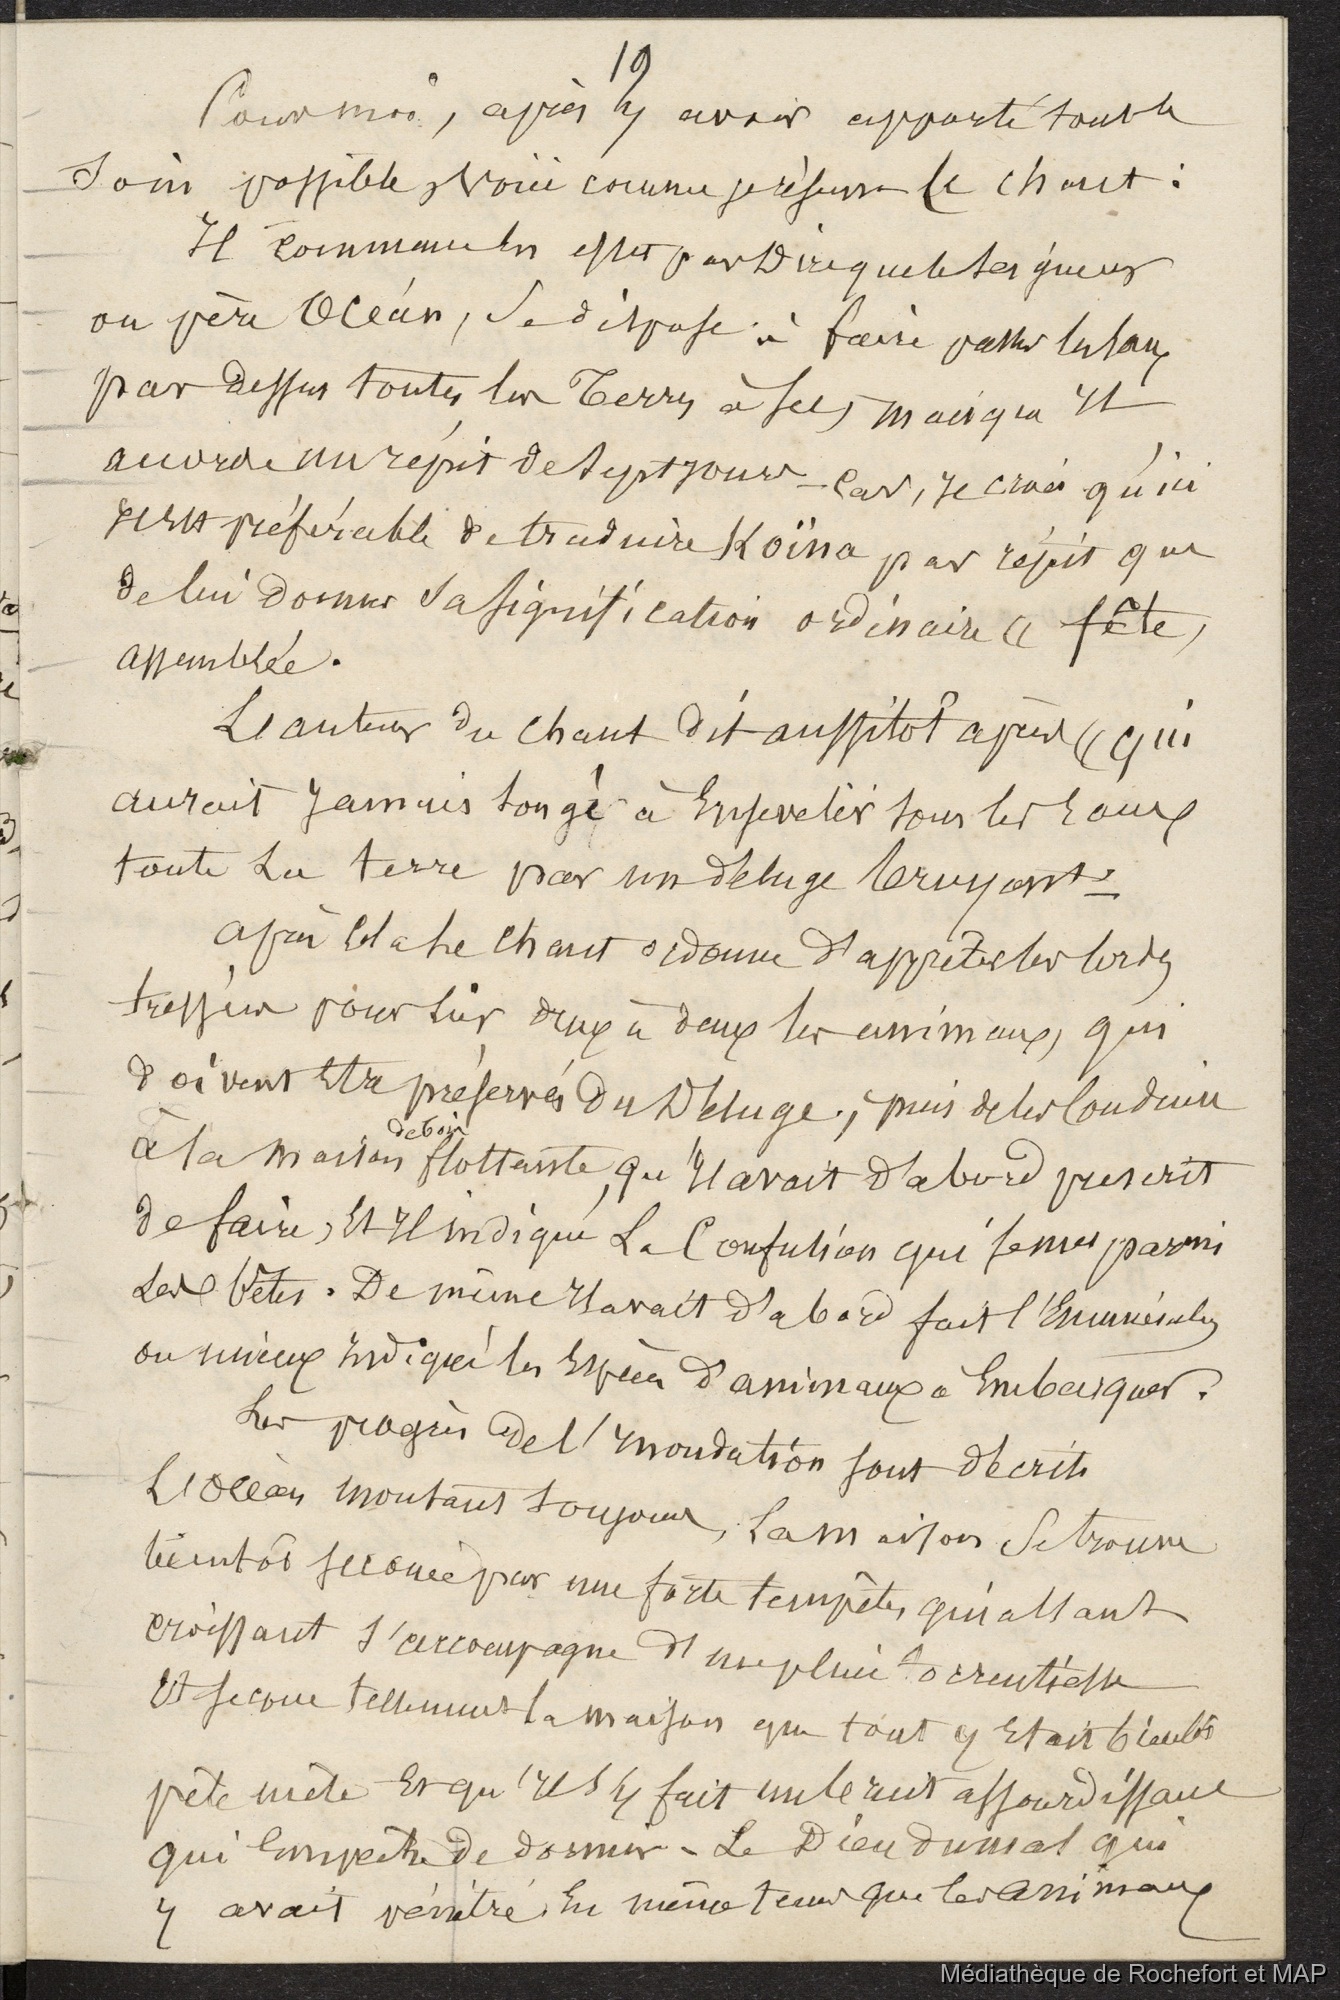 19
Pour moi, après y avoir apporté tout le
soin possible, voici comme je résume le chant :
Il commence en effet par dire que le seigneur
ou père Océan, se dispose à faire passer les eaux
par dessus toutes les Terres à sec, mais qu'il
accorde un répit de sept jours - Car, je crois qu'ici
il est préférable de traduire Koïna par répit que
de lui donner sa signification ordinaire « fête,
assemblée.
L'auteur du chant dit aussitôt après « qui
aurait jamais songé à ensevelir sous les Eaux
toute la terre par un déluge bruyant.
après cela le chant ordonne d'apprêter les cordes
tressées pour lier deux à deux les animaux, qui
doivent être préservés du Déluge, puis de les conduire
à la maison de bois flottante, qu'il avait d'abord prescrit
de faire, et il indique la Confusion qui se met parmi
les bêtes. De même il avait d'abord fait l'énumération
ou mieux indiqué les espèces d'animaux à embarquer.
Les progrès de l'inondation sont décrits
L'océan montant toujours, la maison se trouve
bientôt secouée par une forte tempête, qui allant
croissant s'accompagne d'une pluie torrentielle
Et secoue tellement la maison que tout y était bientôt
pêle mêle et qu'il s'y fait un bruit assourdissant
qui empêche de dormir - Le Dieu du mal qui
y avait pénétré en même temps que les animaux
Médiathèque de Rochefort et MAP